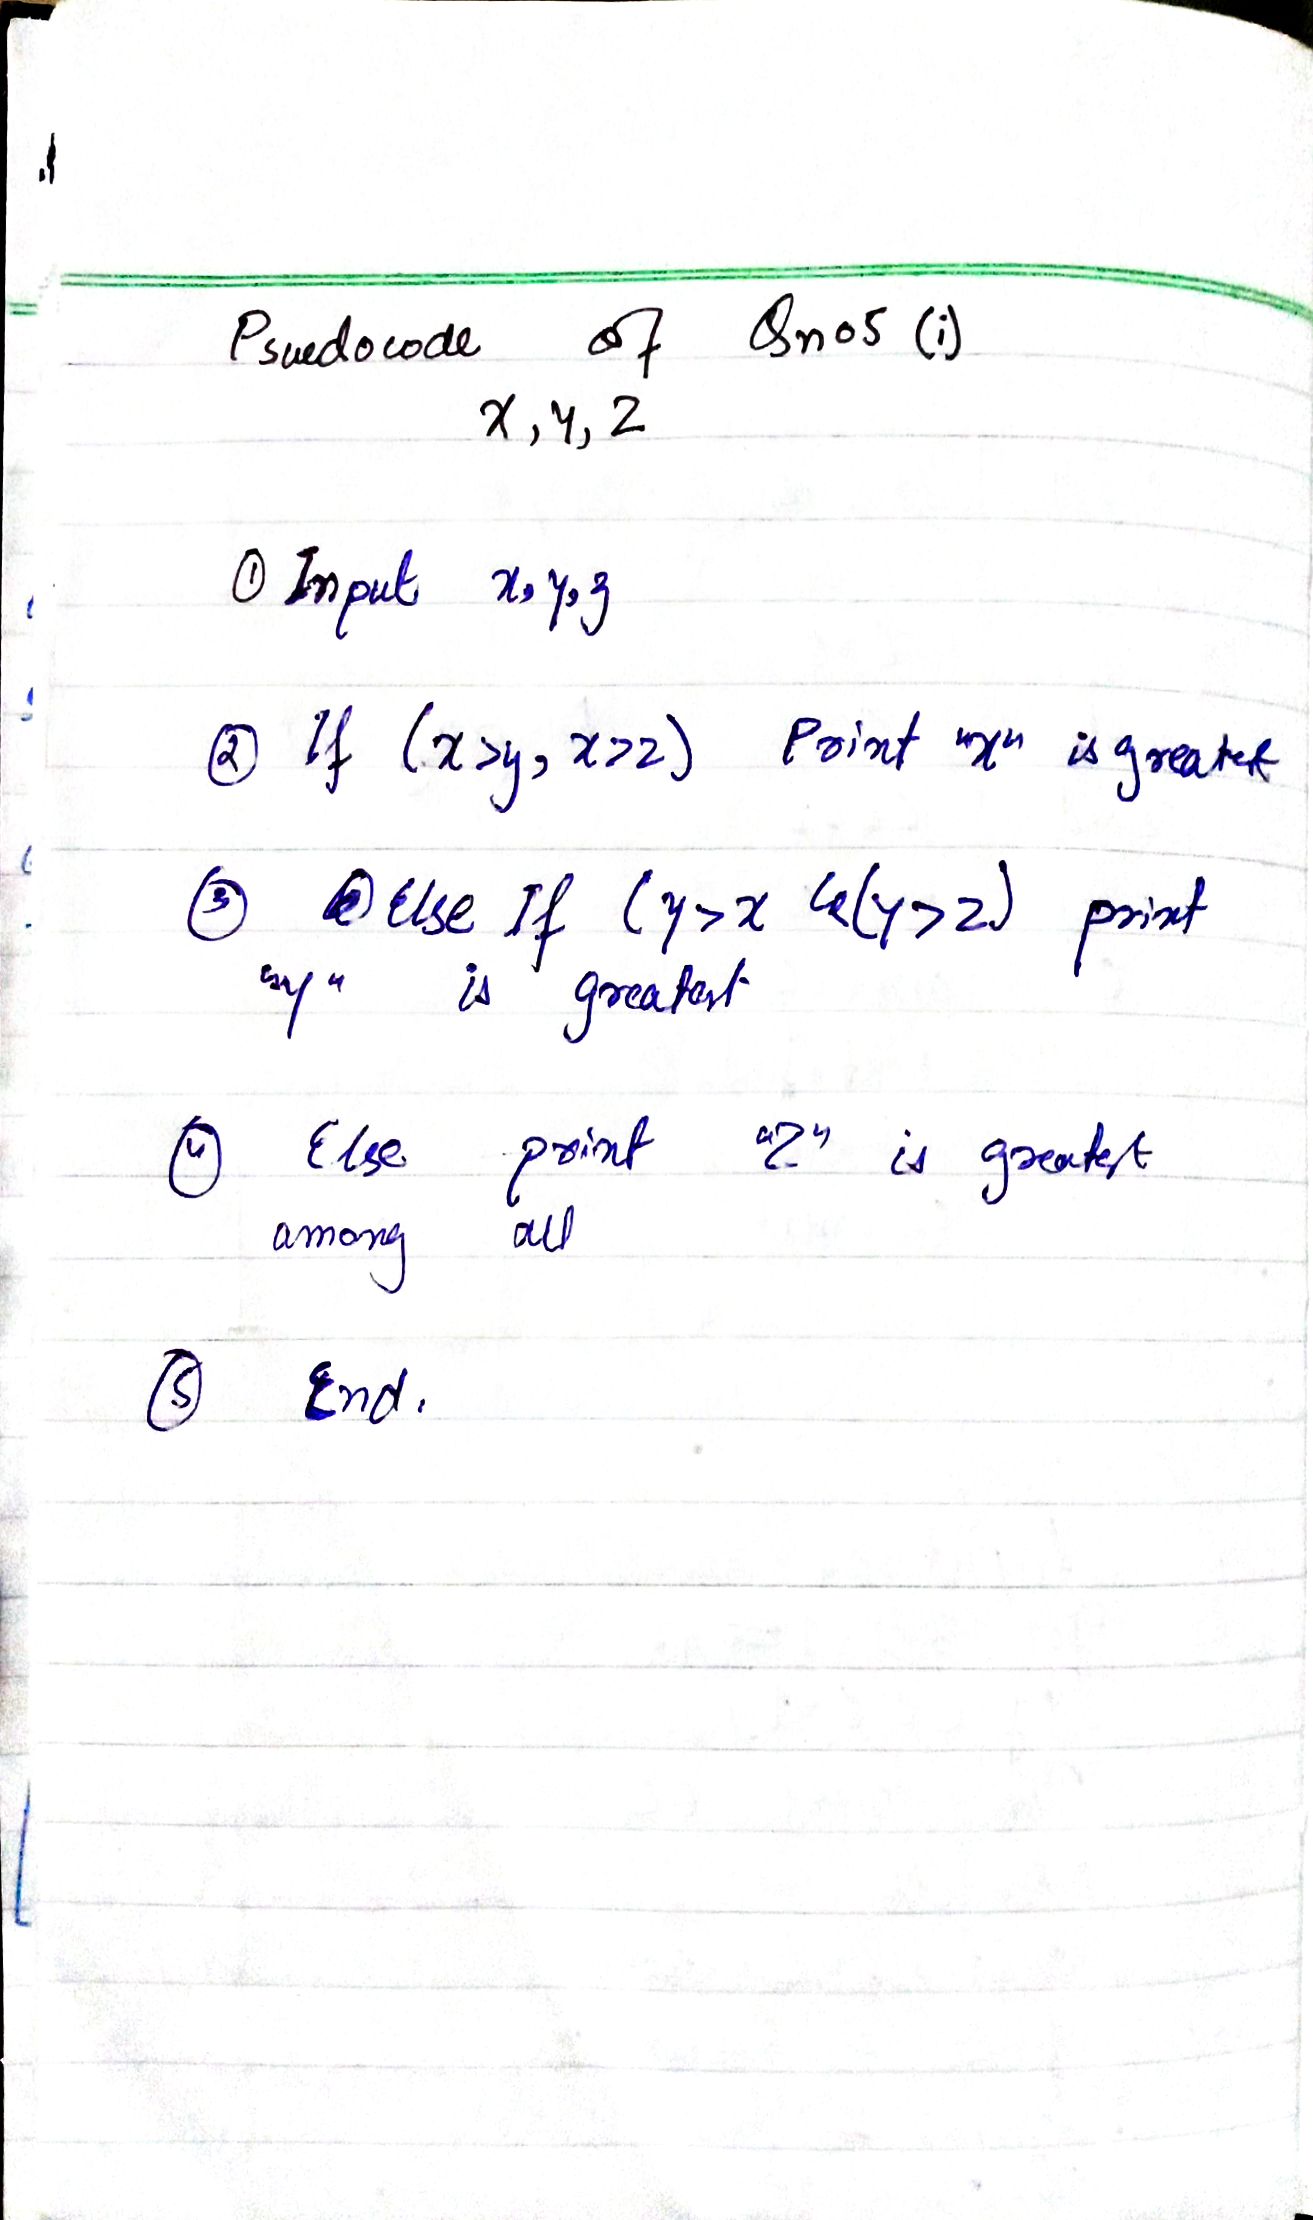 Psuedocode of Qno5 (i)
x, y, z
① Input x, y, z
② If (x>y, x>z) Print "x" is greatest
③ Else If (y>x &(y>z) print
"y" is greatest
④ Else print "Z" is greatest
among all
⑤ End.